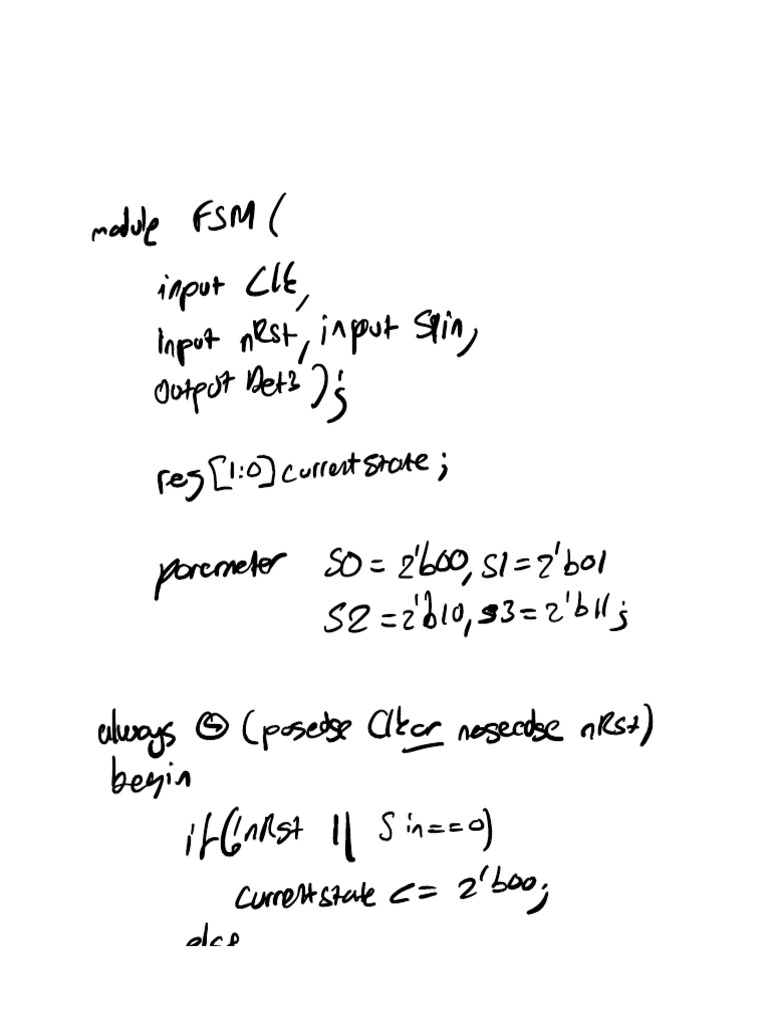 module FSM (
input Clk,
input nRst, input Sin,
Output Det3 );
reg [1:0] currentstate;
parameter S0 = 2'b00, S1 = 2'b01
S2 = 2'b10, s3 = 2'b11;
always @ (posedge Clk or negedge nRst)
begin
if (!nRst || Sin==0)
currentstate <= 2'b00;
else